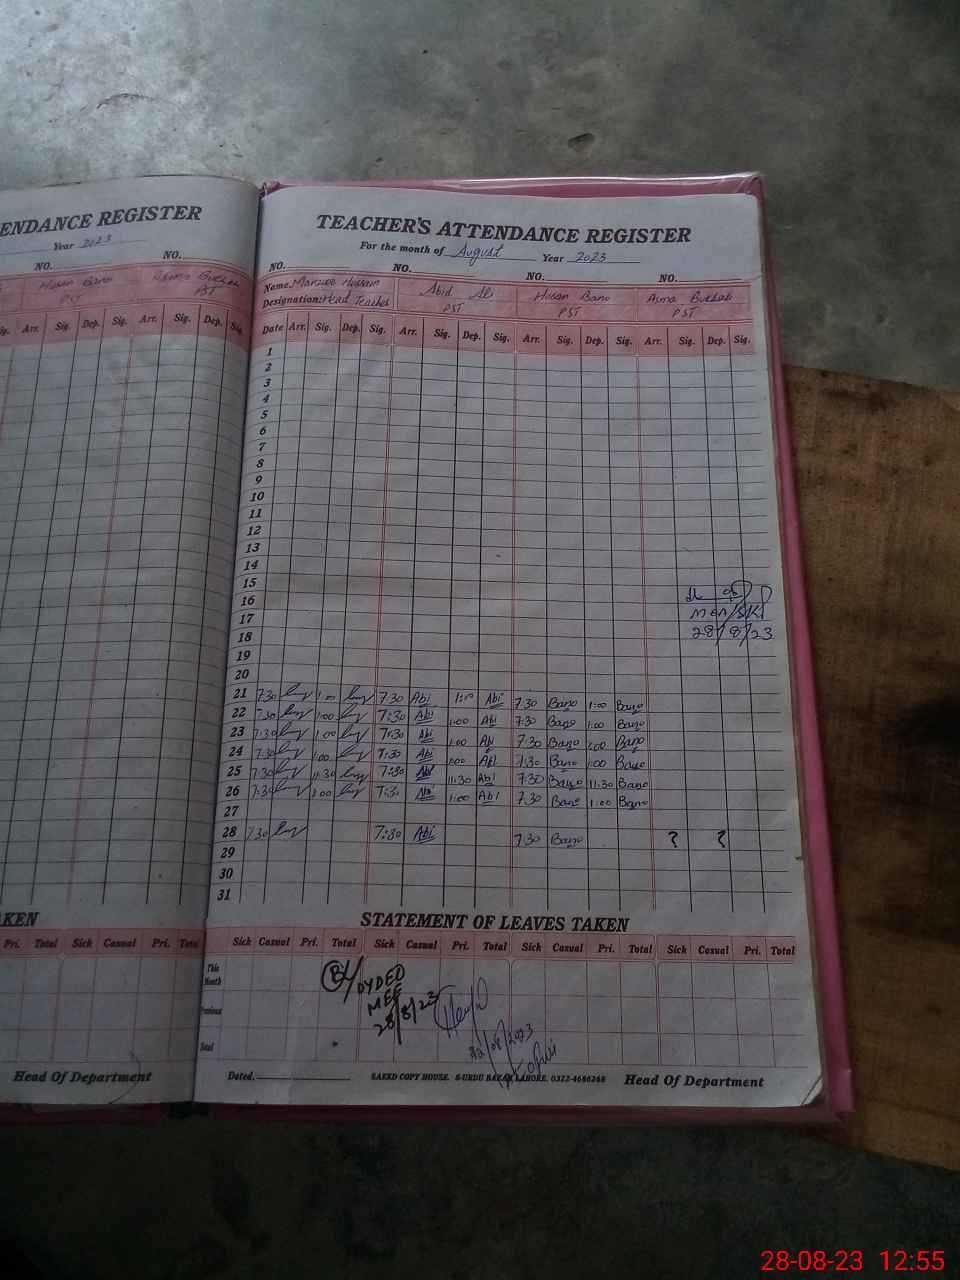 ENDANCE REGISTER
Year 2023
NO. NO.
Husan Bano
PST PST
Sig. Arr. Sig. Dep. Sig. Arr. Sig. Dep. Sig.
TAKEN
Pri. Total Sick Casual Pri. Total
Head Of Department
TEACHER'S ATTENDANCE REGISTER
For the month of August Year 2023
NO. NO. NO. NO.
Name. Manzoor Hussain Abid Ali Husan Bano Asma Bukhari
Designation: Head Teacher PST PST PST
Date Arr. Sig. Dep. Sig. Arr. Sig. Dep. Sig. Arr. Sig. Dep. Sig. Arr. Sig. Dep. Sig.
1
2
3
4
5
6
7
8
9
10
11
12
13
14
15
16
MEA/SKT
17
28/8/23
18
19
20
21 7:30 1:00 7:30 Abi 1:00 Abi 7:30 Bano 1:00 Bano
22 7:30 1:00 7:30 Abi 1:00 Abi 7:30 Bano 1:00 Bano
23 7:30 1:00 7:30 Abi 1:00 Abi 7:30 Bano 1:00 Bano
24 7:30 1:00 7:30 Abi 1:00 Abi 7:30 Bano 1:00 Bano
25 7:30 11:30 7:30 Abi 11:30 Abi 7:30 Bano 11:30 Bano
26 7:30 1:00 7:30 Abi 1:00 Abi 7:30 Bano 1:00 Bano
27
28 7:30 7:30 Abi 7:30 Bano ? ?
29
30
31
STATEMENT OF LEAVES TAKEN
Sick Casual Pri. Total Sick Casual Pri. Total Sick Casual Pri. Total Sick Casual Pri. Total
This Month
Previousal
Total
DYDEO
MEE
28/8/23
/08/2023
Dated. SAEED COPY HOUSE. 8-URDU BAZAR LAHORE. 0322-4686268 Head Of Department
28-08-23 12:55